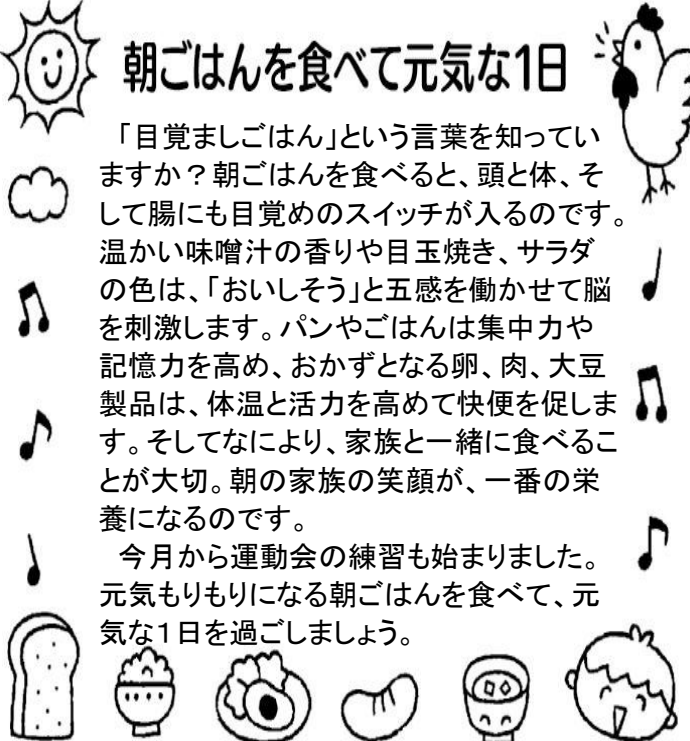 朝ごはんを食べて元気な1日
「目覚ましごはん」という言葉を知ってい
ますか?朝ごはんを食べると、頭と体、そ
して腸にも目覚めのスイッチが入るのです。
温かい味噌汁の香りや目玉焼き、サラダ
の色は、「おいしそう」と五感を働かせて脳
を刺激します。パンやごはんは集中力や
記憶力を高め、おかずとなる卵、肉、大豆
製品は、体温と活力を高めて快便を促しま
す。そしてなにより、家族と一緒に食べるこ
とが大切。朝の家族の笑顔が、一番の栄
養になるのです。
今月から運動会の練習も始まりました。
元気もりもりになる朝ごはんを食べて、元
気な1日を過ごしましょう。